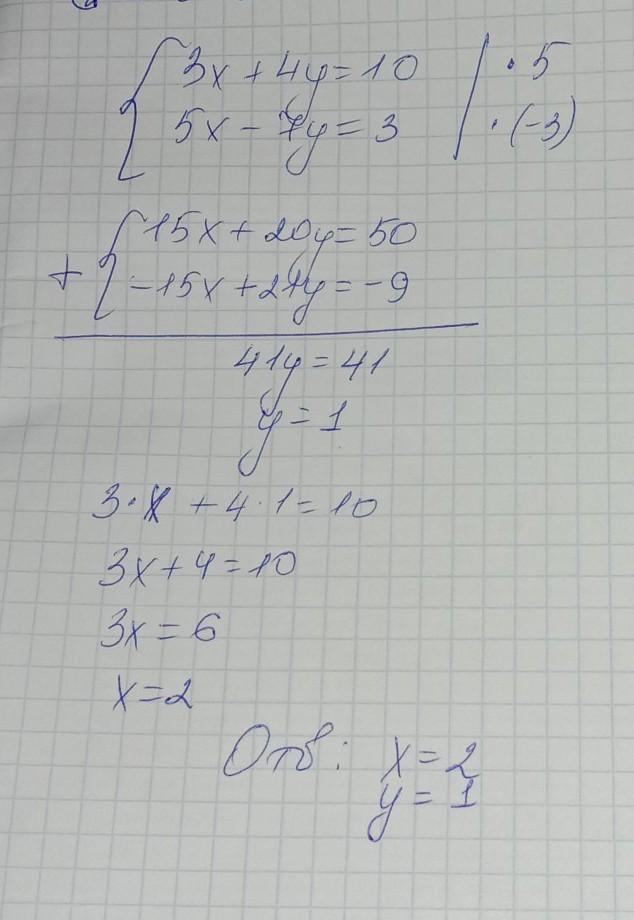 3x + 4y = 10 | · 5
5x - 7y = 3 | · (-3)
15x + 20y = 50
+
-15x + 21y = -9
41y = 41
y = 1
3 · x + 4 · 1 = 10
3x + 4 = 10
3x = 6
x = 2
Отв: x = 2
y = 1